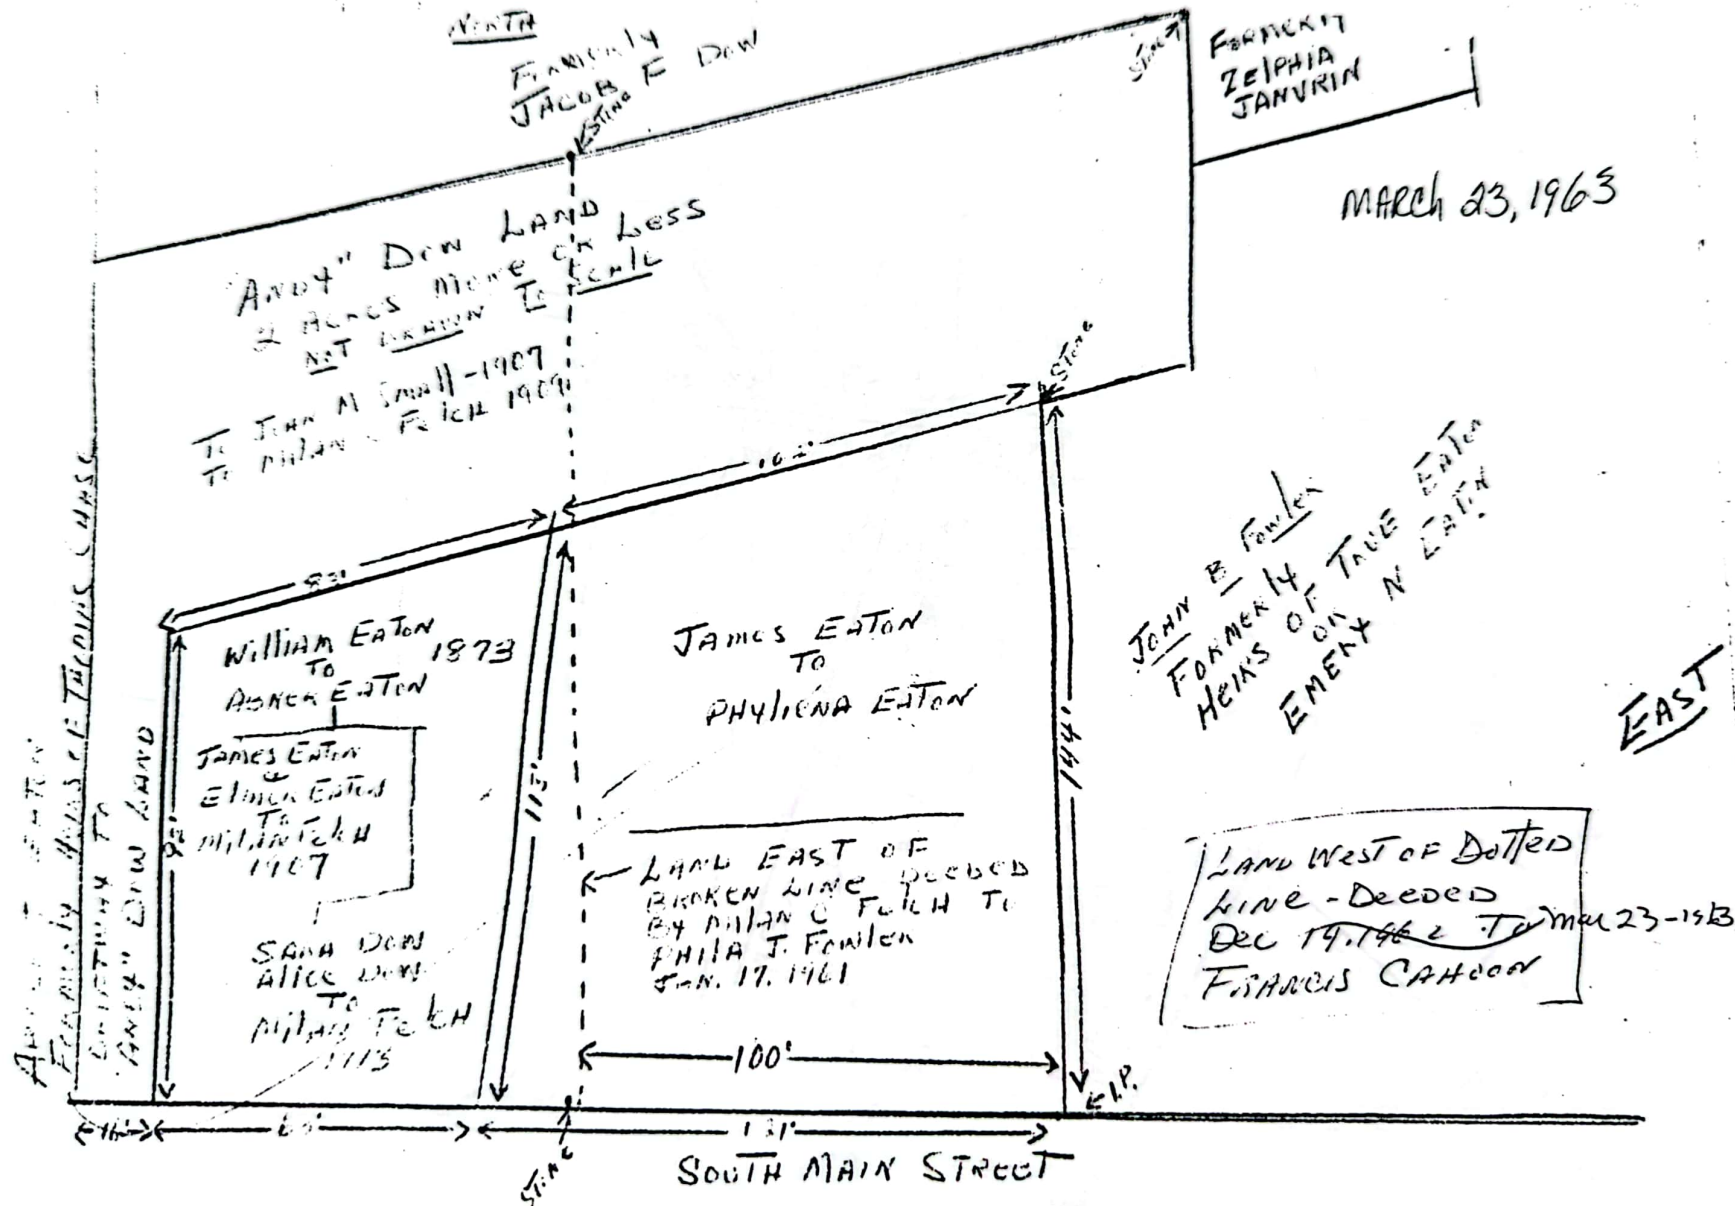 NORTH
Formerly
JACOB F DOW
STONE
STONE
FORMERLY
ZELPHIA
JANVRIN
MARCH 23, 1963
"ANDY" DOW LAND
2 ACRES MORE OR LESS
NOT DRAWN TO SCALE
TO JOHN M SMALL - 1907
TO MILAN FELCH 1909
STONE
102'
83'
WILLIAM EATON
TO 1873
ABNER EATON
JAMES EATON
&
ELMER EATON
TO
MILAN FELCH
1907
SARA DOW
ALICE DOW
TO
MILAN FELCH
1113
113'
JAMES EATON
TO
PHYLIENA EATON
LAND EAST OF
BROKEN LINE DEEDED
BY MILAN C FELCH TO
PHILA J. FOWLER
JAN. 17. 1961
144'
100'
JOHN B FOWLER
FORMERLY
HEIRS OF TRUE EATON
OR
EMERY N EATON
EAST
LAND WEST OF DOTTED
LINE - DEEDED
DEC TO MAR 23-1963
FRANCIS CAHOON
FORMERLY HOUSE OF CHASE
TO
"ANDY" DOW LAND
I.P.
131'
STONE
SOUTH MAIN STREET